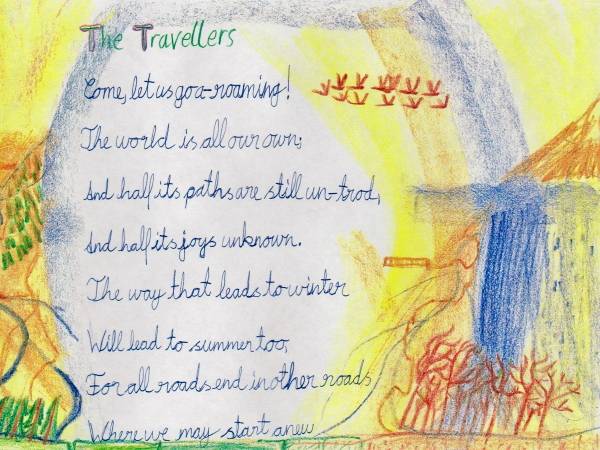 The Travellers
Come, let us go a-roaming!
The world is all our own;
And half its paths are still un-trod,
And half its joys unknown.
The way that leads to winter
Will lead to summer too,
For all roads end in other roads
Where we may start anew